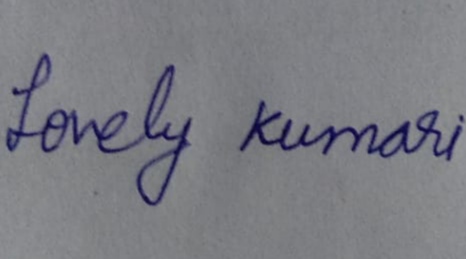 Lovely Kumari